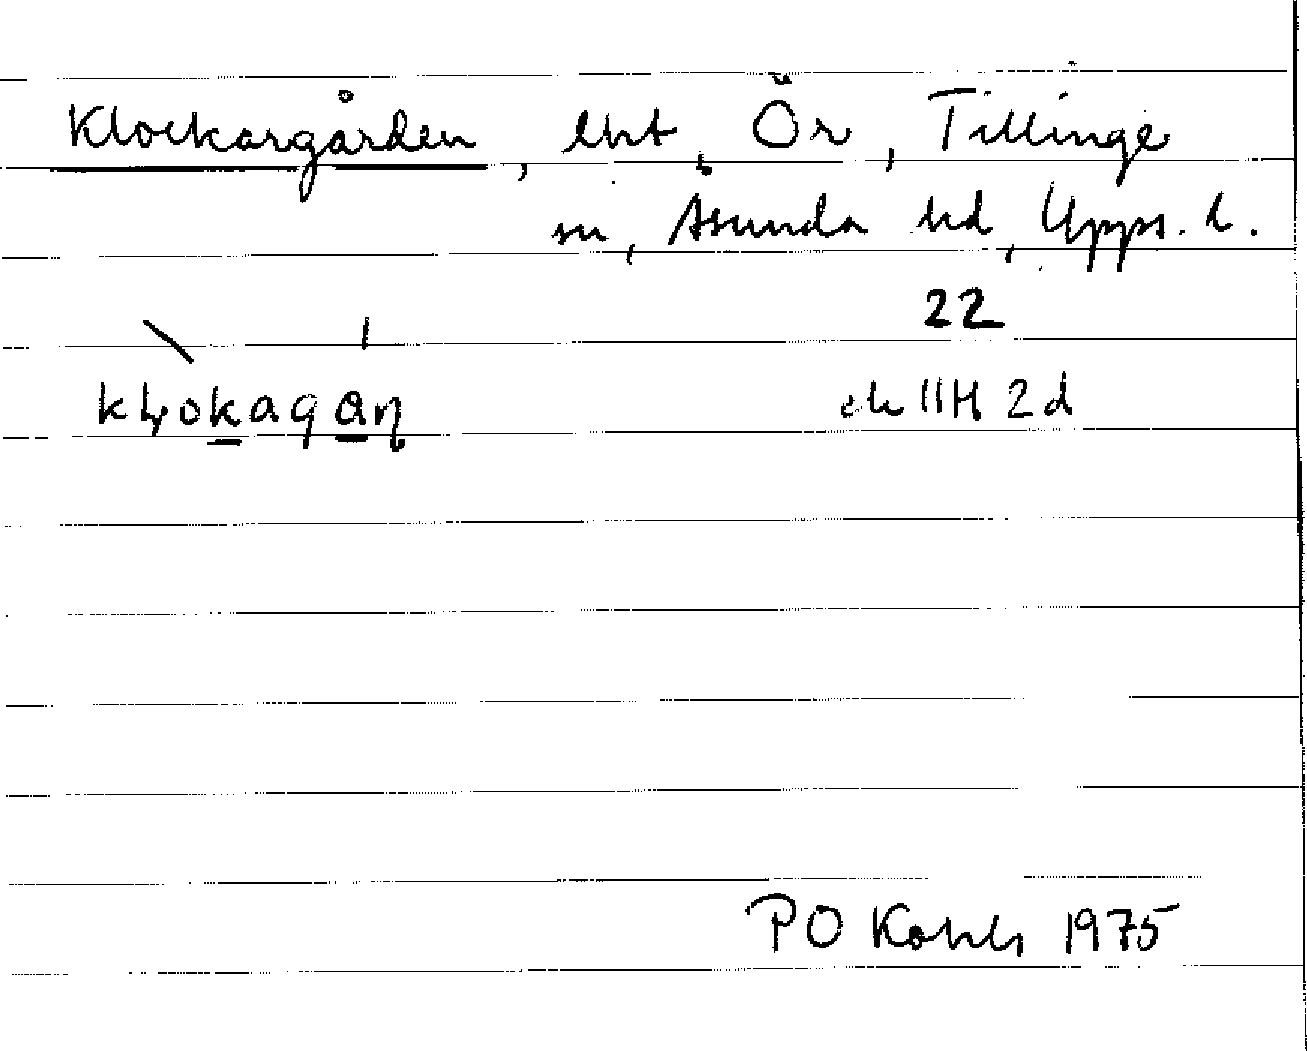 Klockargården, lht, Ör, Tillinge
sn, Åsunda hd, Upps. l.
22
kḷokagaṇ
ek 11H 2d
PO 1975